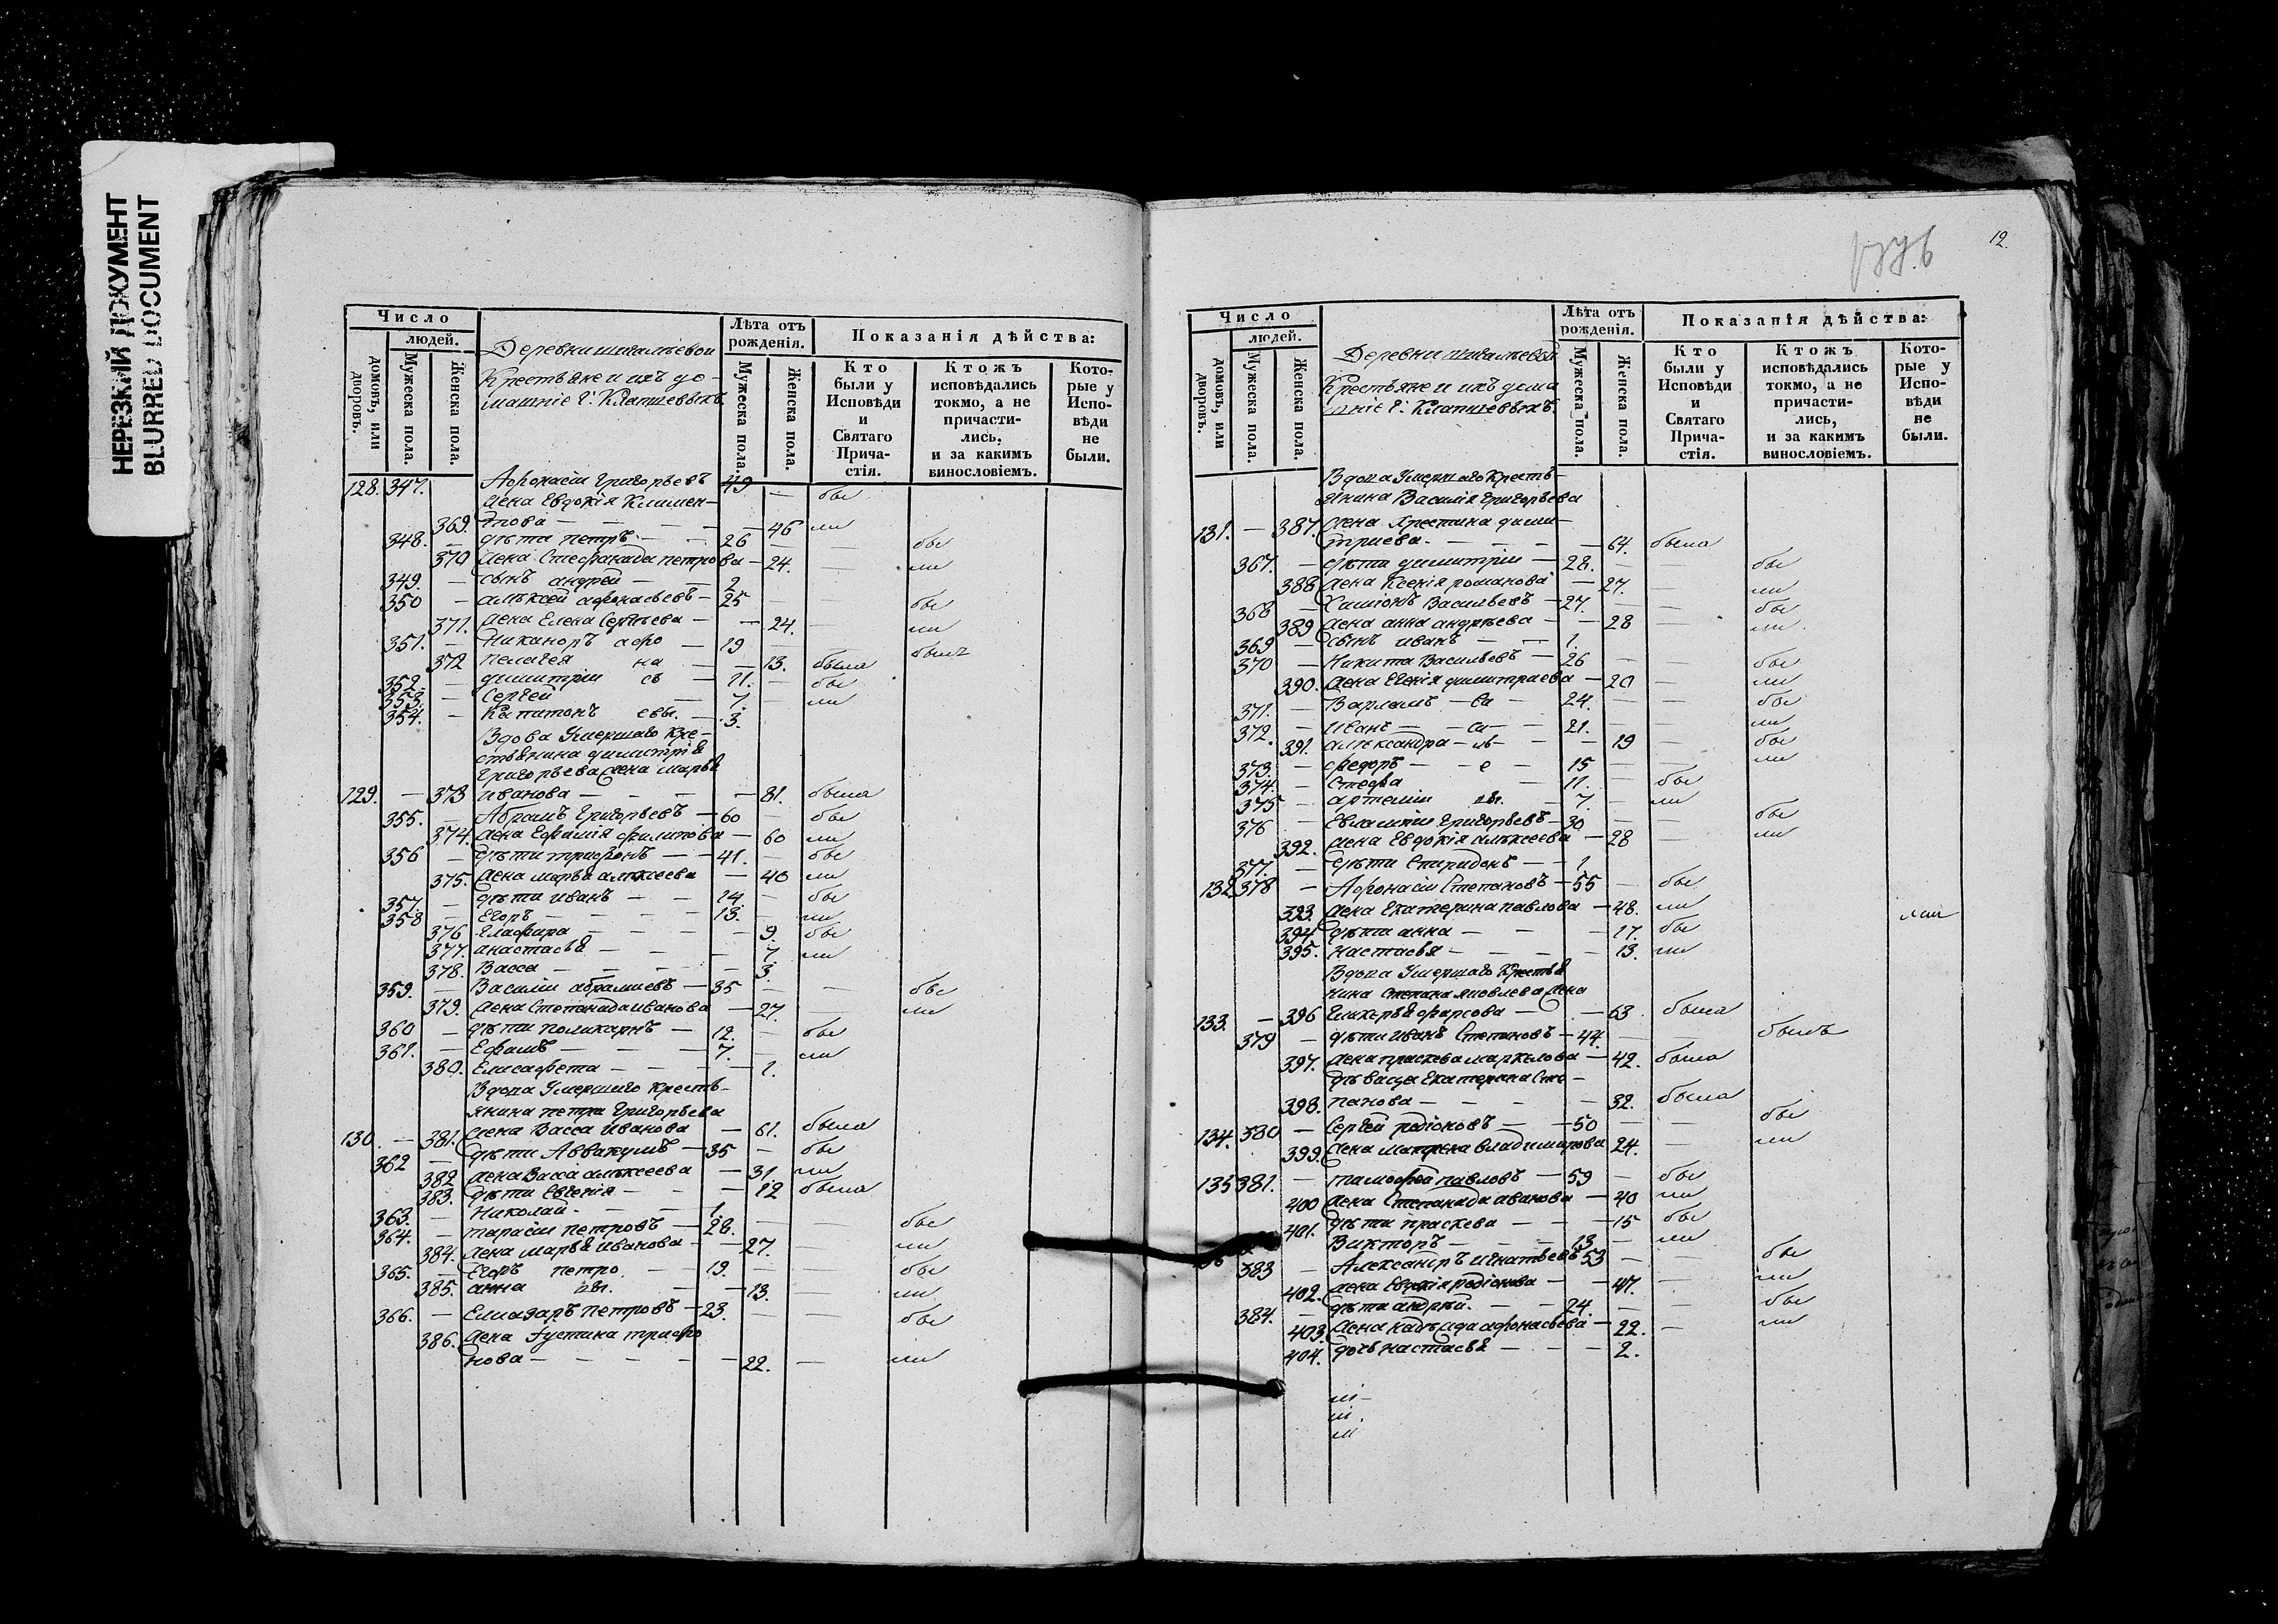 НЕРЕЗКИЙ ДОКУМЕНТ
BLURRED DOCUMENT
Число
людей.
домовъ, или дворовъ.
Мужеска пола.
Женска пола.
Деревни
Крестьяне и ихъ до-
машніе г.
Лѣта отъ рожденія.
Мужеска пола.
Женска пола.
Показанія дѣйства:
Кто были у Исповѣди и Святаго Прича-стія.
Ктожъ исповѣдались токмо, а не причасти-лись, и за какимъ винословіемъ.
Кото-рые у Испо-вѣди не были.
128. 347. Афонасіи Григорьевъ 49 — бы
жена Евдокія Климен-
369. това — — — 46 ли
348. — дѣти петръ — 26 — — бы
370 жена Стефанида петрова — 24. — ли
349. — сынъ андрей — 2
350 — алѣксей афонасьевъ — 25 — — бы
371. жена Елена Сергѣева — — 24. — ли
351. — Никаноръ афо — 19 — былъ
372 пелагея на — — 13. была
352. димитріи съ — 11. — бы
353. — Сергей — 7. — ли
354. — Капитонъ евы. — 3.
Вдова Умершаго Кре-
стьянина димитрія
Григорьева жена марья
129. — 373 иванова — — — 81. была
355. — Абрамъ Григорьевъ — 60 — бы
374. жена Ефимія филипова — 60 ли
356 — дѣти трифонъ — — 41. — бы
375. жена марья алѣксеева — 40 ли
357. — дѣти иванъ — — 14. — бы
358 — Егоръ — — — 13. — ли
376 Глафира — — — — 9. бы
377. анастасья — — — 7. ли
378. Васса — — — — 3.
359. — Василіи абрамиевъ — 35 — — бы
379. жена Степанида иванова — 27. — ли
360 — дѣти поликарпъ — 12. — бы
361. — Ефимъ — — — 7. — ли
380. Елисафета — — — — 1.
Вдова Умершаго крестъ-
янина петра Григорьева
130. — 381. жена Васса Иванова — 61. была
362 — дѣти Аввакумъ — 35 — бы
382 жена Васса алѣксеева — 31. ли
383. дѣти Евгенія — — — 12 была
363. — Николай. — — 1.
364. — тарасіи петровъ — 28. — — бы
384. жена марья Иванова — — 27. — ли
365. — Егоръ петро — 19. — — бы
385. анна вы. — — 13. — ли
366. — Елиазаръ петровъ — 23. — — бы
386. жена Густина трифо
нова — — — — — 22. — ли
12.
Число
людей.
домовъ, или дворовъ.
Мужеска пола.
Женска пола.
Деревни
Крестьяне и ихъ дома
шніе г.
Лѣта отъ рожденія.
Мужеска пола.
Женска пола.
Показанія дѣйства:
Кто были у Исповѣди и Святаго Прича-стія.
Ктожъ исповѣдались токмо, а не причасти-лись, и за какимъ винословіемъ.
Кото-рые у Испо-вѣди не были.
Вдова Умершаго Кресть-
янина Василія Григорьева
131. — 387. жена Хрестина дими-
тріева. — — — — 64. была
367. — дѣти димитріи — 28. — — бы
388 жена Ксенія романова — 27. — ли
368 — Васильевъ — 27. — — бы
389 жена анна андрѣева — — 28 — ли
369 — сынъ иванъ — — 1.
370 — Никита Васильевъ — 26 — — бы
390. жена димитриева — 20 — ли
371. — Варламъ — ва — 24. — — бы
372. — Иванъ — си — 21. — — ли
391. алѣксандра — — — 19 — бы
373. — федоръ — — е — 15 — — ли
374. — Стефа — 11. — бы
375 — артеміи вы. — 7. — ли
376 — Евлампіи Григорьевъ — 30 — — бы
392. жена Евдокія алѣксеева — 28 — ли
377. — дѣти Спиридонъ — — 1.
132 378 — Афонасіи Степановъ — 55 — бы
393. жена Екатерина павлова — 48. ли
394. дѣти анна — — — 17. бы
395. настасья — — — — 13. ли
Вдова Умершаго Крестья
нина Степана яковлева жена
133. — 396 Гликерья фирсова — — 63. была
379 — дѣти иванъ Степановъ — 44. — — былъ
397. жена праскева маркелова — 42. была
дѣвица Екатерина Сте-
398. панова — — — — 32. была
134. 380 — Сергей родіоновъ — — 50 — — бы
399. жена матрена владимирова 24. — ли
135 381. — тимофей павловъ — 59 — бы
400 жена Степанида иванова — 40 ли
401. дѣти праскева — — — 15 бы
Викторъ — — — 13 — ли
383 — Александръ игнатьевъ 53 — бы
402. жена родіонова — — 47. — ли
384. — дѣти андрѣй. — — 24. — — бы
403. жена афонасьева — 22. — ли
404. дочь настасья — — — 2.